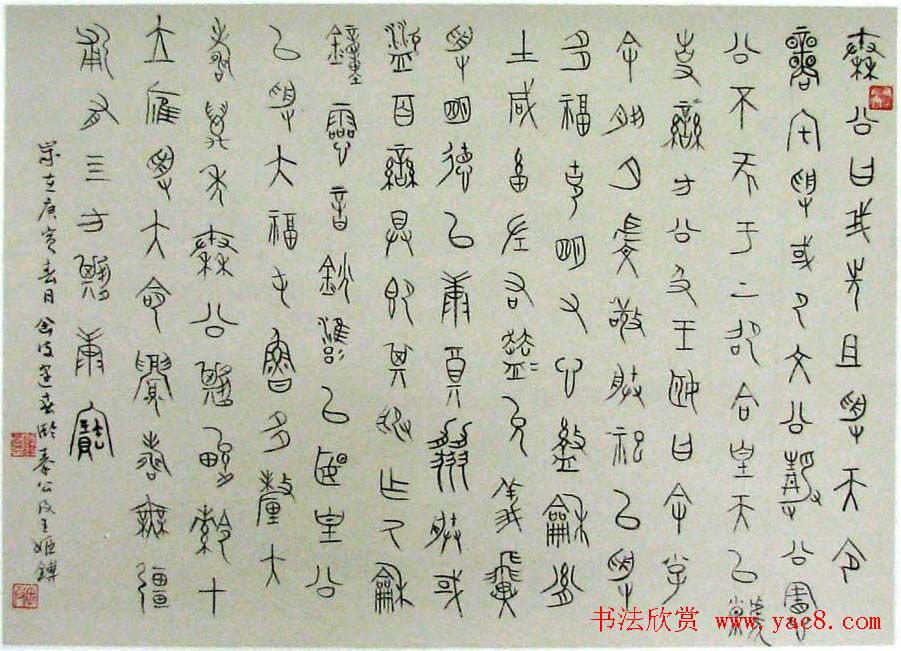 秦公曰我先且受天令
商宅受或卲文公靜公憲
公不㒸于上卲合皇天以虩
事蠻方公及王姬曰余小子
余夙夕虔敬朕祀以受
多福克明又心盭龢胤
士咸畜左右藹允義翼
受明德以康奠協朕或
盜百蠻具即其服乍氒龢
鐘靈音雍以宴皇公
以受大福屯魯多釐大
壽萬年秦公其畯令在
立膺受大命眉壽無疆
匍有四方其康寶
歲在庚寅春日臨秦公及王姬鎛
书法欣赏 www.yac8.com